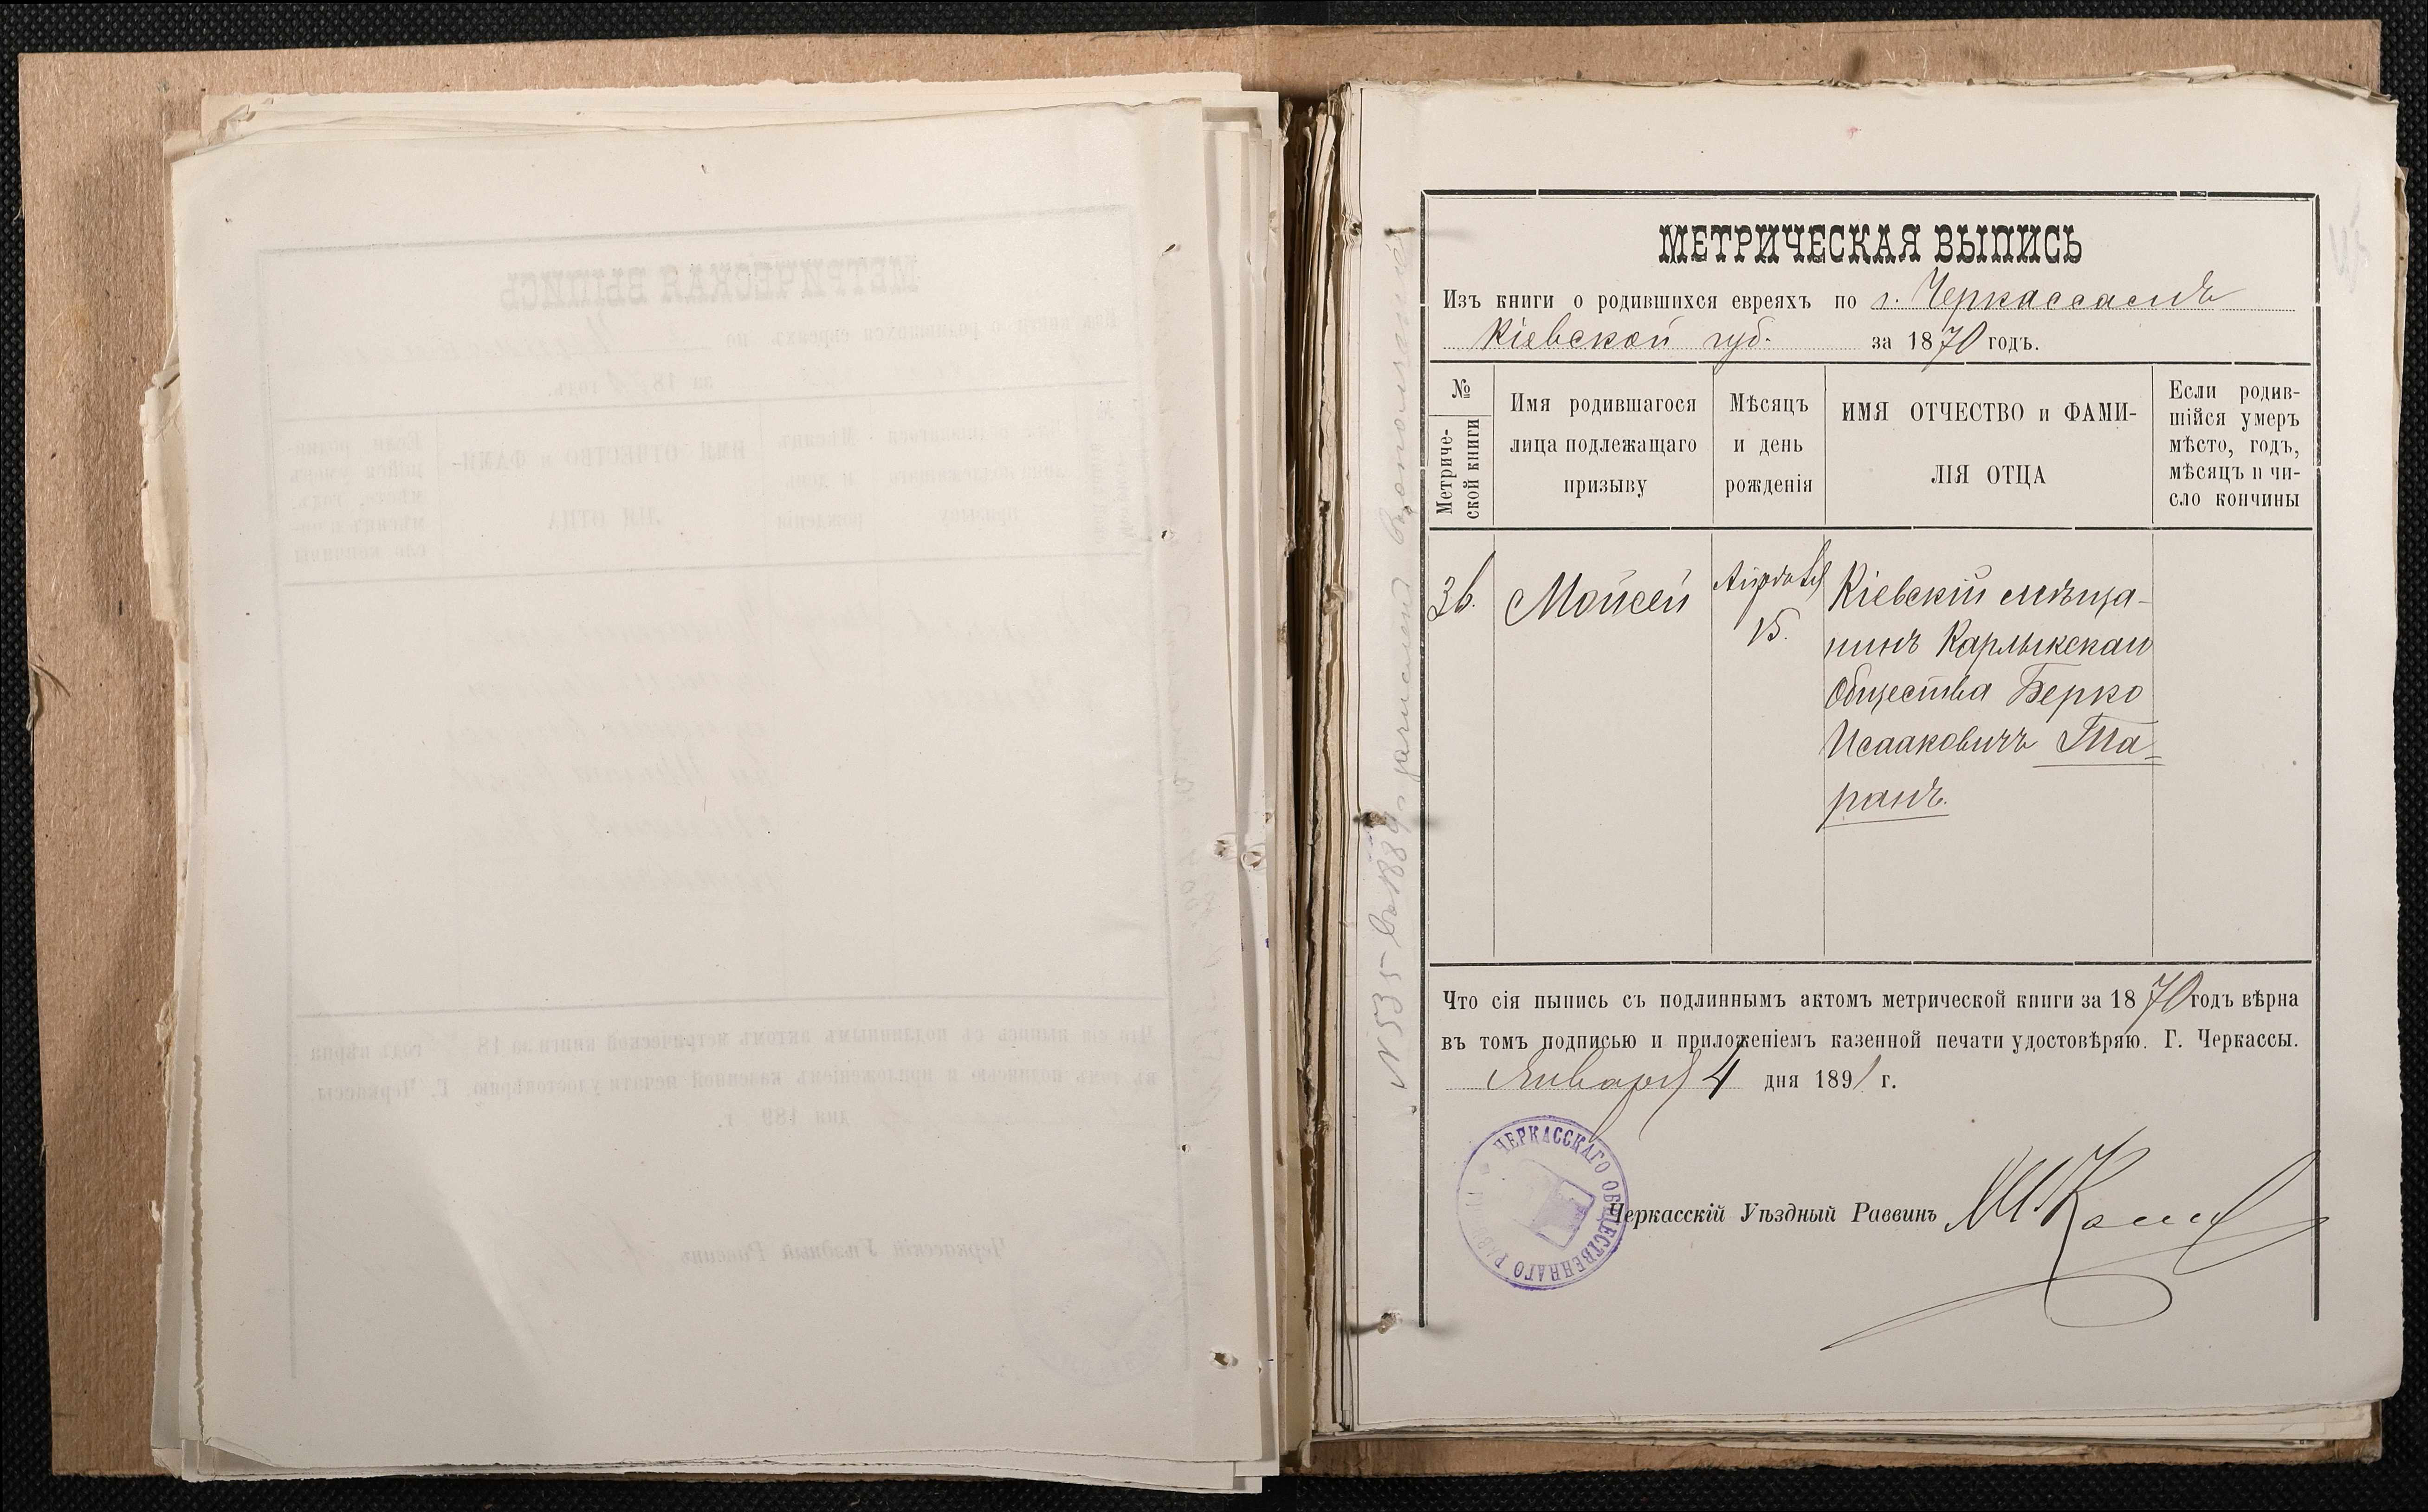 МЕТРИЧЕСКАЯ ВЫПИСЬ
Изъ книги о родившихся евреяхъ по г. Черкассамъ
Кіевской губ. за 1870 годъ.
№
Метриче-
ской книги
Имя родившагося
лица подлежащаго
призыву
Мѣсяцъ
и день
рожденія
ИМЯ ОТЧЕСТВО и ФАМИ-
ЛІЯ ОТЦА
Если родив-
шійся умеръ
мѣсто, годъ,
мѣсяцъ и чи-
сло кончины
36.
Мойсей
15.
Кіевскій мѣща-
нинъ
Общества Берко
Исааковичъ Та-
ранъ.
Что сія выпись съ подлиннымъ актомъ метрической книги за 1870 годъ вѣрна
въ томъ подписью и приложеніемъ казенной печати удостовѣряю. Г. Черкассы.
Января 4 дня 1891 г.
ЧЕРКАССКАГО ОБЩЕСТВЕННАГО
Черкасскій Уѣздный Раввинъ
№ 535